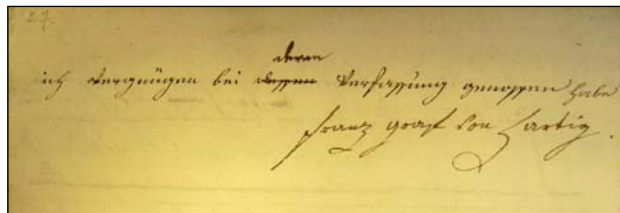 27.
deren
ich Vergnügen bei dessen Verfassung genossen habe
Franz Graf von Hartig.